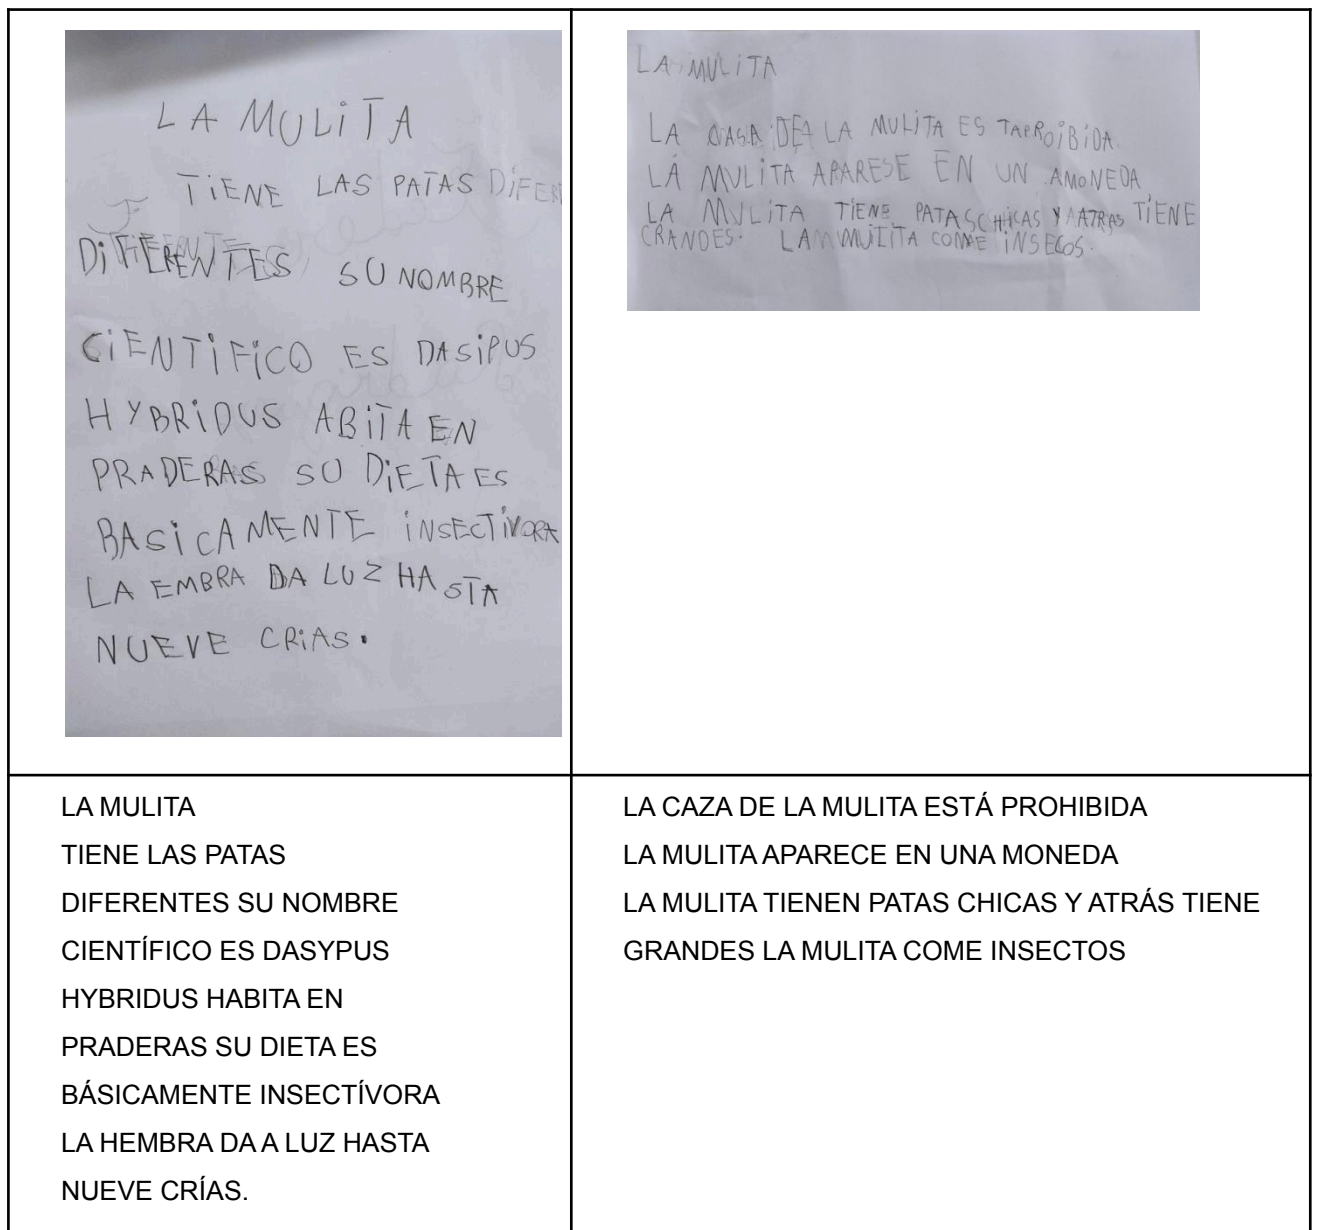 LA MULiTA
TiENE LAS PATAS DiFER
DiFERENTES SU NOMBRE
CiENTiFiCO ES DASiPUS
HYBRiDUS ABiTA EN
PRADERAS SU DiETA ES
BASiCAMENTE iNSECTiVORA
LA EMBRA DA LUZ HASTA
NUEVE CRiAS.
LA MULiTA
LA CASA DE LA MULiTA ES TAPROiBiDA.
LA MULiTA APARESE EN UN AMONEDA
LA MULiTA TiENE PATASCHiCAS Y AATRAS TiENE
GRANDES. LA MULiTA COME iNSECOS.
LA MULITA
TIENE LAS PATAS
DIFERENTES SU NOMBRE
CIENTÍFICO ES DASYPUS
HYBRIDUS HABITA EN
PRADERAS SU DIETA ES
BÁSICAMENTE INSECTÍVORA
LA HEMBRA DA A LUZ HASTA
NUEVE CRÍAS.
LA CAZA DE LA MULITA ESTÁ PROHIBIDA
LA MULITA APARECE EN UNA MONEDA
LA MULITA TIENEN PATAS CHICAS Y ATRÁS TIENE
GRANDES LA MULITA COME INSECTOS